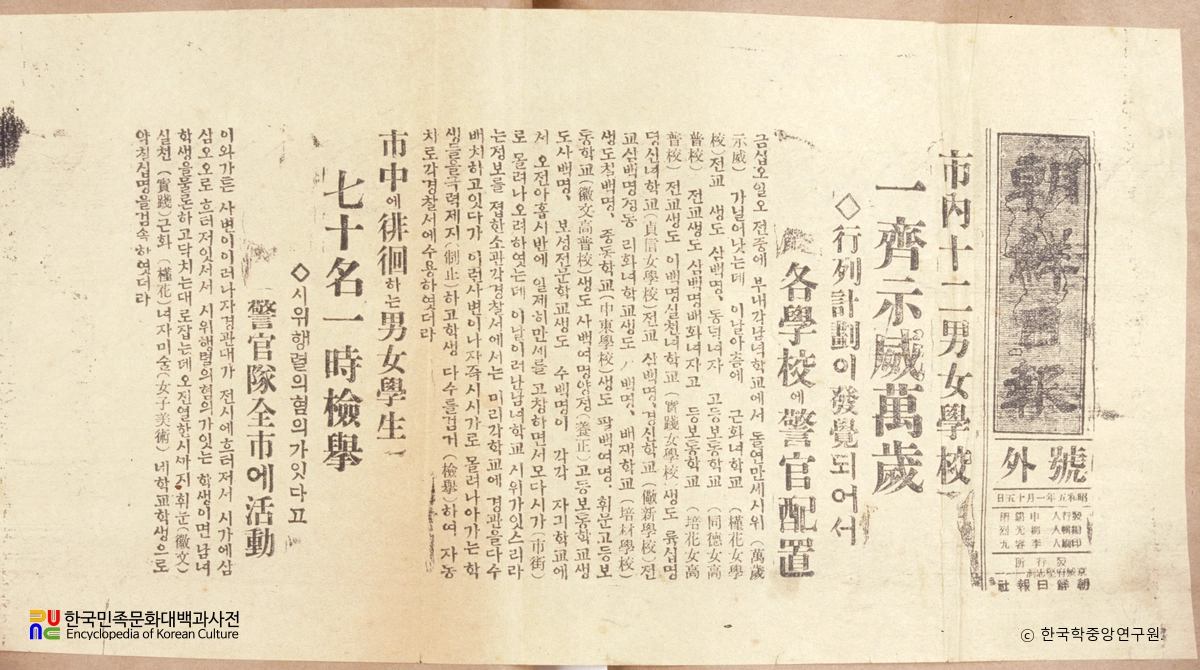 朝鮮日報
號外
昭和五年一月十五日
發行所
朝鮮日報社
市內十二男女學校
一齊示威萬歲
◇行列計劃이 發覺되어서
各學校에 警官配置
금십오일오 전중에 부내각남녀학교에서 돌연만세시위 (萬歲
示威) 가닐어낫는데 이날아츰에 근화녀학교 (槿花女學
校) 전교 생도 삼백명、동덕녀자 고등보통학교 (同德女高
普校) 전교생도 삼백명배화녀자고 등보통학교 (培花女高
普校) 전교생도 이백명실천녀학교 (實踐女學校)생도 륙십명
뎡신녀학교(貞信女學校)전교 삼백명、경신학교 (儆新學校)전
교삼백명정동 리화녀학교생도 백명、배재학교 (培材學校)
생도칠백명、중동학교(中東學校)생도 팔백여명、휘문고등보
통학교(徽文高普校)생도 사백여명양정(養正)고등보통학교생
도사백명、 보성전문학교생도 수백명이 각각 자긔학교에
서 오전아홉시반에 일제히만세를 고창하면서모다시가 (市街)
로 몰려나오려하엿는데 이날이러난남녀학교 시위가잇스리라
는정보를 졉한소관각경찰서에서는 미리각학교에 경관을다수
배치하고잇다가 이런사변이나자즉시시가로 몰려나아가는 학
생들을극력제지(制止)하고학생 다수를검거 (檢擧)하여 자동
차로각경찰서에수용하엿더라
市中에徘徊하는男女學生
七十名一時檢擧
◇시위행렬의혐의가잇다고
警官隊全市에活動
이와가튼 사변이이러나자경관대가 전시에흐터저서 시가에삼
삼오오로 흐터저잇서서 시위행렬의혐의가잇는 학생이면남녀
학생을물론하고닥치는대로잡는데오전열한시까지휘문(徽文)
실천 (實踐)근화 (槿花)녀자미술(女子美術) 네학교학생으로
약칠십명을검속하엿더라
한국민족문화대백과사전
Encyclopedia of Korean Culture
© 한국학중앙연구원